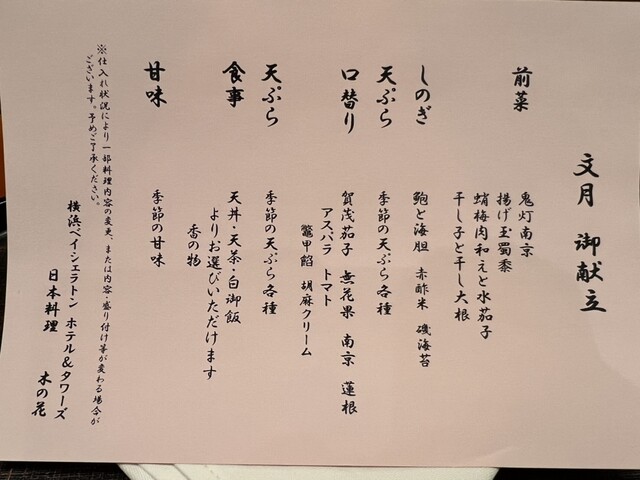 文月 御献立
前菜
鬼灯南京
揚げ玉蜀黍
蛸梅肉和えと水茄子
干し子と干し大根
しのぎ
鮑と海胆 赤酢米 磯海苔
天ぷら
季節の天ぷら各種
口替り
賀茂茄子 無花果 南京 蓮根
アスパラ トマト
鼈甲餡 胡麻クリーム
天ぷら
季節の天ぷら各種
食事
天丼・天茶・白御飯
よりお選びいただけます
香の物
甘味
季節の甘味
※仕入れ状況により一部料理内容の変更、または内容・盛り付け等が変わる場合が
ございます。予めご了承ください。
横浜ベイ・シェラトン ホテル&タワーズ
日本料理 木の花